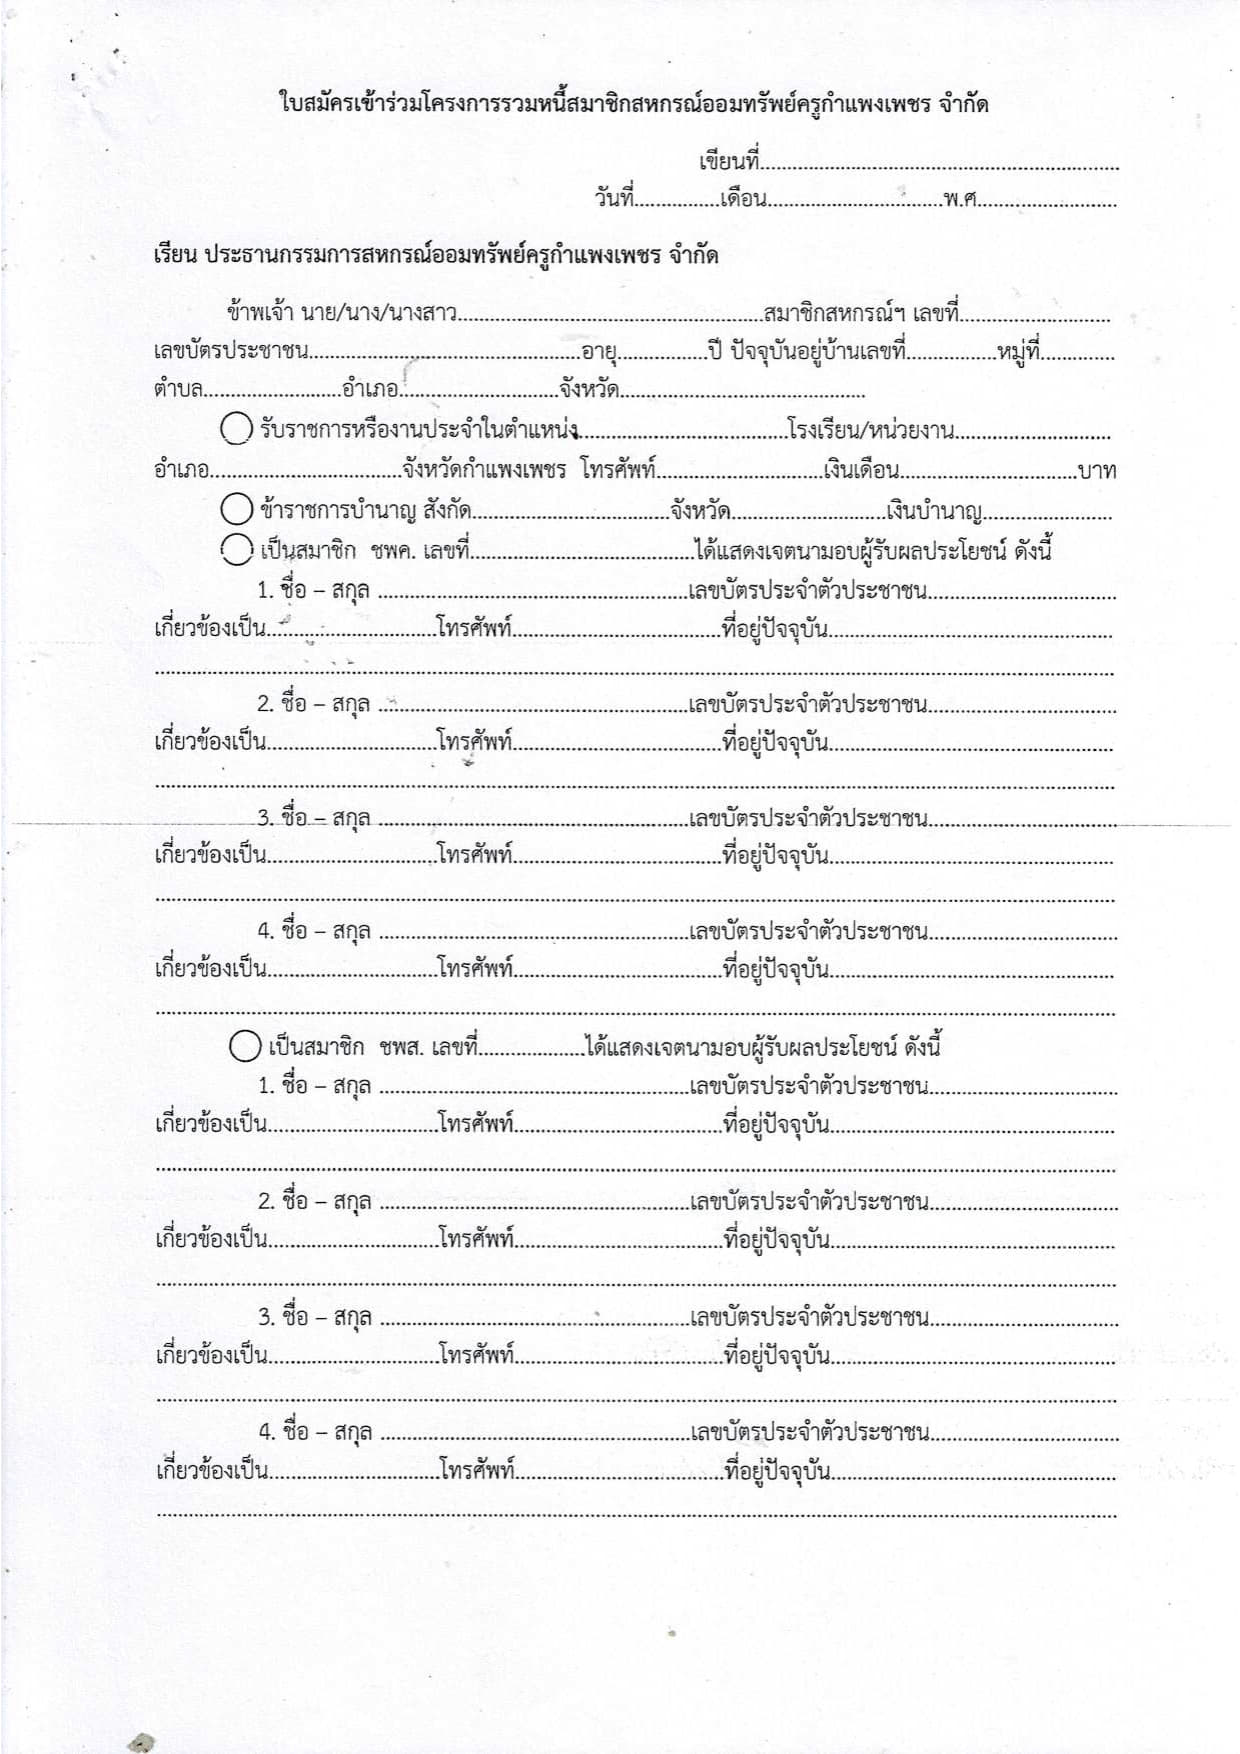 ใบสมัครเข้าร่วมโครงการรวมหนี้สมาชิกสหกรณ์ออมทรัพย์ครูกำแพงเพชร จำกัด
เขียนที่....................................................................
วันที่................เดือน.................................พ.ศ..........................
เรียน ประธานกรรมการสหกรณ์ออมทรัพย์ครูกำแพงเพชร จำกัด
ข้าพเจ้า นาย/นาง/นางสาว..........................................................สมาชิกสหกรณ์ฯ เลขที่............................
เลขบัตรประชาชน...................................................อายุ.................ปี ปัจจุบันอยู่บ้านเลขที่.................หมู่ที่..............
ตำบล..........................อำเภอ..............................จังหวัด..............................................
รับราชการหรืองานประจำในตำแหน่ง.......................................โรงเรียน/หน่วยงาน.............................
อำเภอ....................................จังหวัดกำแพงเพชร โทรศัพท์...............................เงินเดือน.................................บาท
ข้าราชการบำนาญ สังกัด.....................................จังหวัด.............................เงินบำนาญ........................
เป็นสมาชิก ชพค. เลขที่..........................................ได้แสดงเจตนามอบผู้รับผลประโยชน์ ดังนี้
1. ชื่อ – สกุล ..........................................................เลขบัตรประจำตัวประชาชน...................................
เกี่ยวข้องเป็น................................โทรศัพท์.......................................ที่อยู่ปัจจุบัน.....................................................
....................................................................................................................................................................................
2. ชื่อ – สกุล ..........................................................เลขบัตรประจำตัวประชาชน...................................
เกี่ยวข้องเป็น................................โทรศัพท์.......................................ที่อยู่ปัจจุบัน.....................................................
....................................................................................................................................................................................
3. ชื่อ – สกุล ..........................................................เลขบัตรประจำตัวประชาชน...................................
เกี่ยวข้องเป็น................................โทรศัพท์.......................................ที่อยู่ปัจจุบัน.....................................................
....................................................................................................................................................................................
4. ชื่อ – สกุล ..........................................................เลขบัตรประจำตัวประชาชน...................................
เกี่ยวข้องเป็น................................โทรศัพท์.......................................ที่อยู่ปัจจุบัน.....................................................
....................................................................................................................................................................................
เป็นสมาชิก ชพส. เลขที่....................ได้แสดงเจตนามอบผู้รับผลประโยชน์ ดังนี้
1. ชื่อ – สกุล ..........................................................เลขบัตรประจำตัวประชาชน...................................
เกี่ยวข้องเป็น................................โทรศัพท์.......................................ที่อยู่ปัจจุบัน.....................................................
....................................................................................................................................................................................
2. ชื่อ – สกุล ..........................................................เลขบัตรประจำตัวประชาชน...................................
เกี่ยวข้องเป็น................................โทรศัพท์.......................................ที่อยู่ปัจจุบัน.....................................................
....................................................................................................................................................................................
3. ชื่อ – สกุล ..........................................................เลขบัตรประจำตัวประชาชน...................................
เกี่ยวข้องเป็น................................โทรศัพท์.......................................ที่อยู่ปัจจุบัน.....................................................
....................................................................................................................................................................................
4. ชื่อ – สกุล ..........................................................เลขบัตรประจำตัวประชาชน...................................
เกี่ยวข้องเป็น................................โทรศัพท์.......................................ที่อยู่ปัจจุบัน.....................................................
....................................................................................................................................................................................